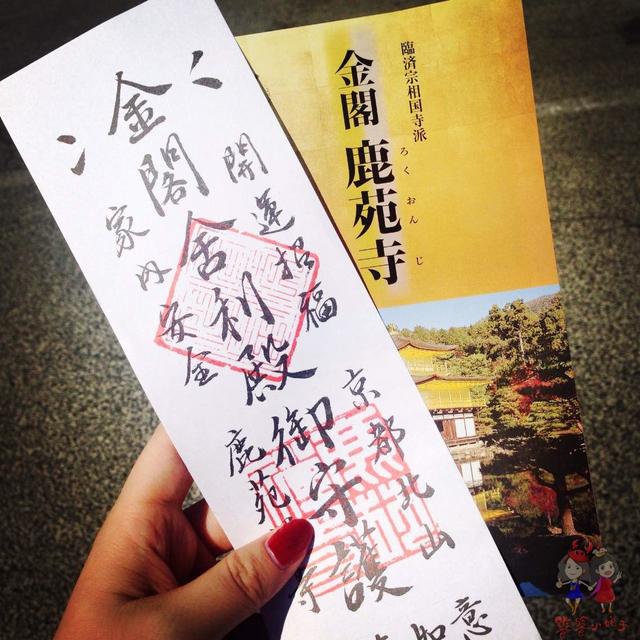 開運招福
金閣舎利殿御守護
家内安全
京都北山
鹿苑寺
如意
臨済宗相国寺派
金閣 鹿苑寺
ろくおんじ